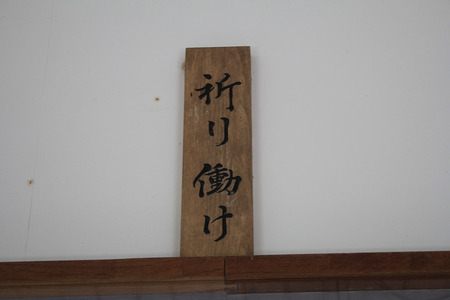 祈り働け